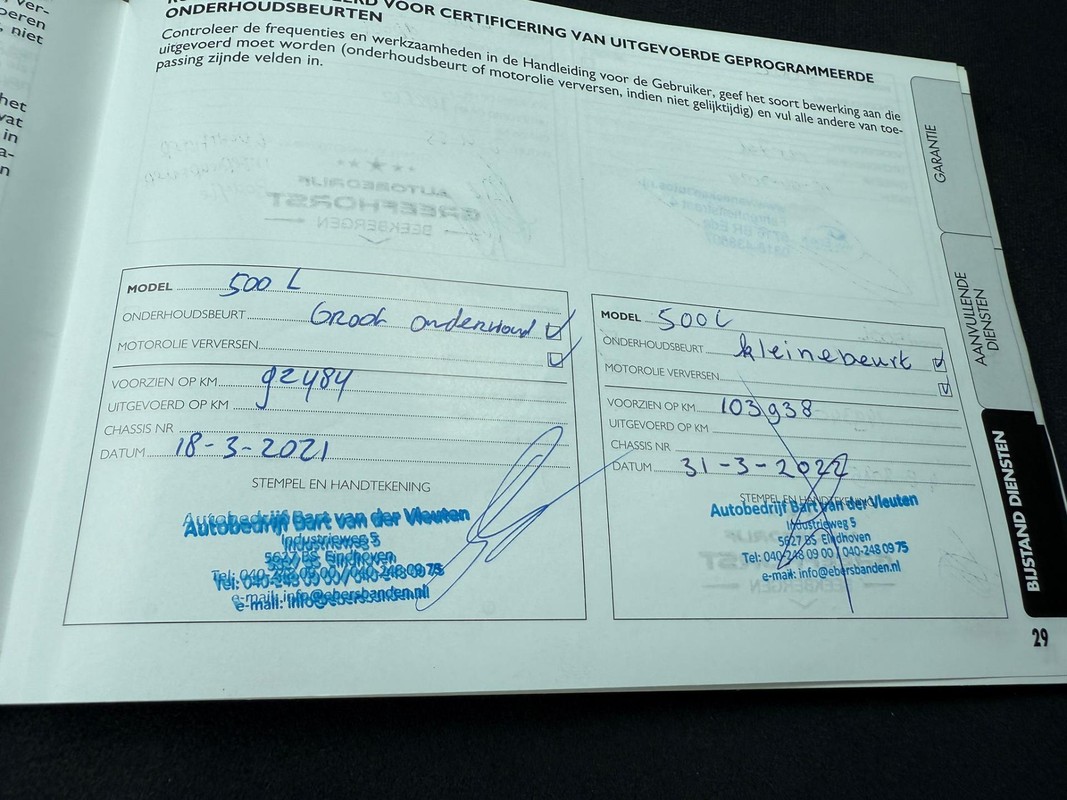 ver-
peren
niet
het
wat
in
a-
n
VOOR CERTIFICERING VAN UITGEVOERDE GEPROGRAMMEERDE
ONDERHOUDSBEURTEN
Controleer de frequenties en werkzaamheden in de Handleiding voor de Gebruiker, geef het soort bewerking aan die
uitgevoerd moet worden (onderhoudsbeurt of motorolie verversen, indien niet gelijktijdig) en vul alle andere van toe-
passing zijnde velden in.
MODEL 500 L
ONDERHOUDSBEURT Groot onderhoud
MOTOROLIE VERVERSEN
VOORZIEN OP KM 92484
UITGEVOERD OP KM
CHASSIS NR
DATUM 18-3-2021
STEMPEL EN HANDTEKENING
Autobedrijf Bart van der Vleuten
Industrieweg 5
5627 BS Eindhoven
Tel: 040-248 09 00 / 040-248 09 75
e-mail: info@ebersbanden.nl
MODEL 500L
ONDERHOUDSBEURT kleine beurt
MOTOROLIE VERVERSEN
VOORZIEN OP KM 103938
UITGEVOERD OP KM
CHASSIS NR
DATUM 31-3-2022
STEMPEL EN HANDTEKENING
Autobedrijf Bart van der Vleuten
Industrieweg 5
5627 BS Eindhoven
Tel: 040-248 09 00 / 040-248 09 75
e-mail: info@ebersbanden.nl
GARANTIE
AANVULLENDE
DIENSTEN
BIJSTAND DIENSTEN
29